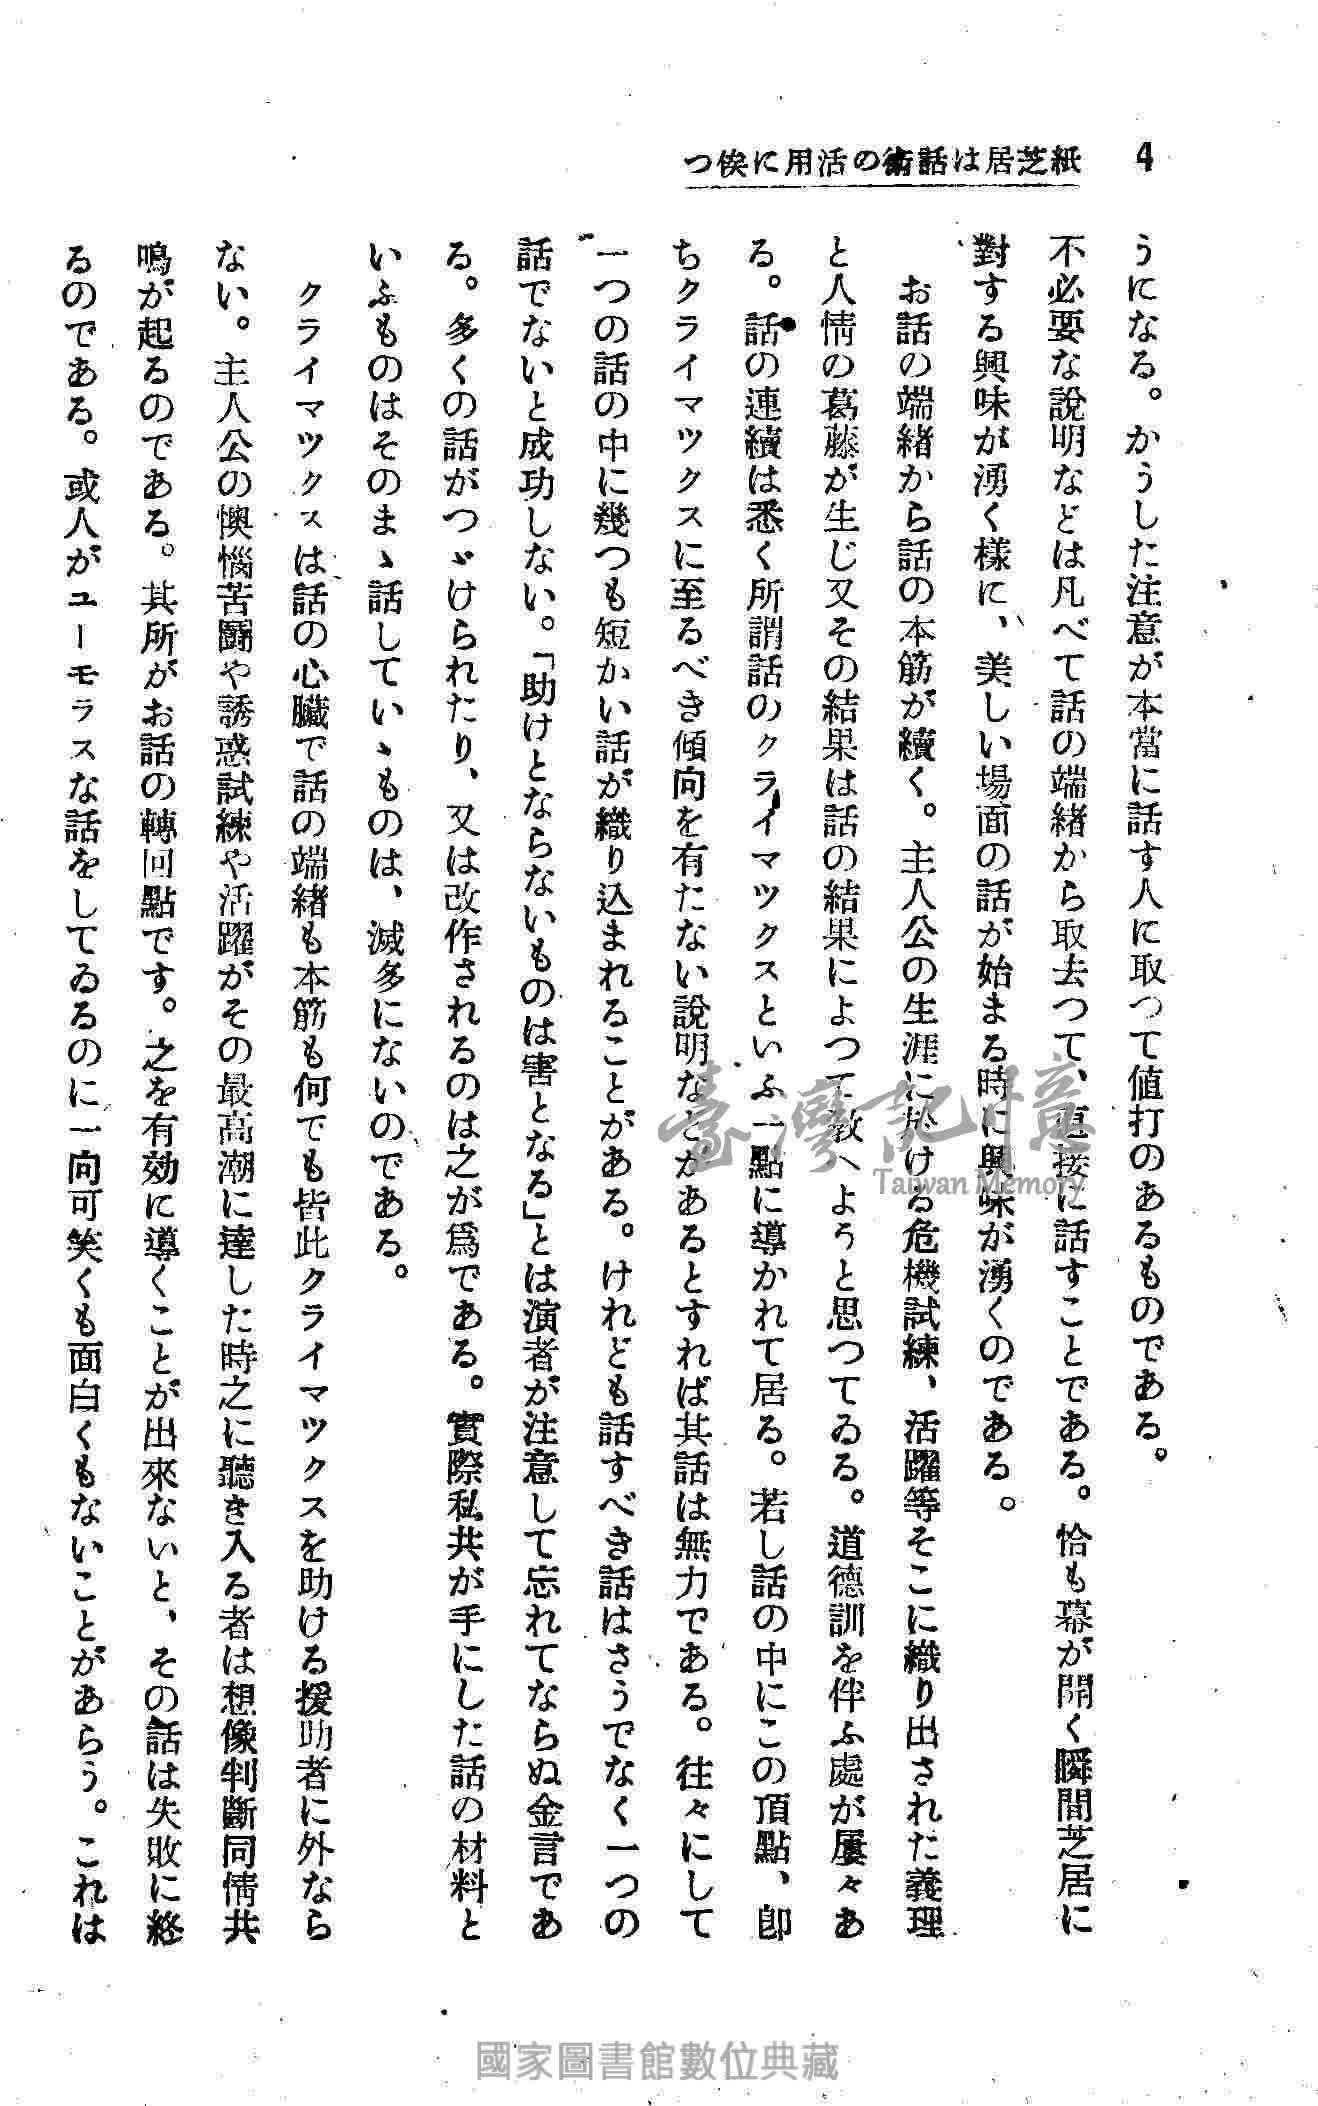 4
紙芝居は話術の活用に俟つ
うになる。かうした注意が本當に話す人に取つて値打のあるものである。
不必要な說明などは凡べて話の端緒から取去つて、直接に話すことである。恰も幕が開く瞬間芝居に
對する興味が湧く樣に、美しい場面の話が始まる時に興味が湧くのである。
お話の端緒から話の本筋が續く。主人公の生涯に於ける危機試練、活躍等そこに織り出された義理
と人情の葛藤が生じ又その結果は話の結果によつて敎へようと思つてゐる。道德訓を伴ふ處が屢々あ
る。話の連續は悉く所謂話のクライマツクスといふ一點に導かれて居る。若し話の中にこの頂點、卽
ちクライマツクスに至るべき傾向を有たない說明などがあるとすれば其話は無力である。往々にして
一つの話の中に幾つも短かい話が織り込まれることがある。けれども話すべき話はさうでなく一つの
話でないと成功しない。「助けとならないものは害となる」とは演者が注意して忘れてならぬ金言であ
る。多くの話がつゞけられたり、又は改作されるのは之が爲である。實際私共が手にした話の材料と
いふものはそのまゝ話していゝものは、滅多にないのである。
クライマツクスは話の心臟で話の端緒も本筋も何でも皆此クライマツクスを助ける援助者に外なら
ない。主人公の懊惱苦鬪や誘惑試練や活躍がその最高潮に達した時之に聽き入る者は想像判斷同情共
鳴が起るのである。其所がお話の轉回點です。之を有効に導くことが出來ないと、その話は失敗に終
るのである。或人がユーモラスな話をしてゐるのに一向可笑くも面白くもないことがあらう。これは
臺灣記憶
Taiwan Memory
國家圖書館數位典藏